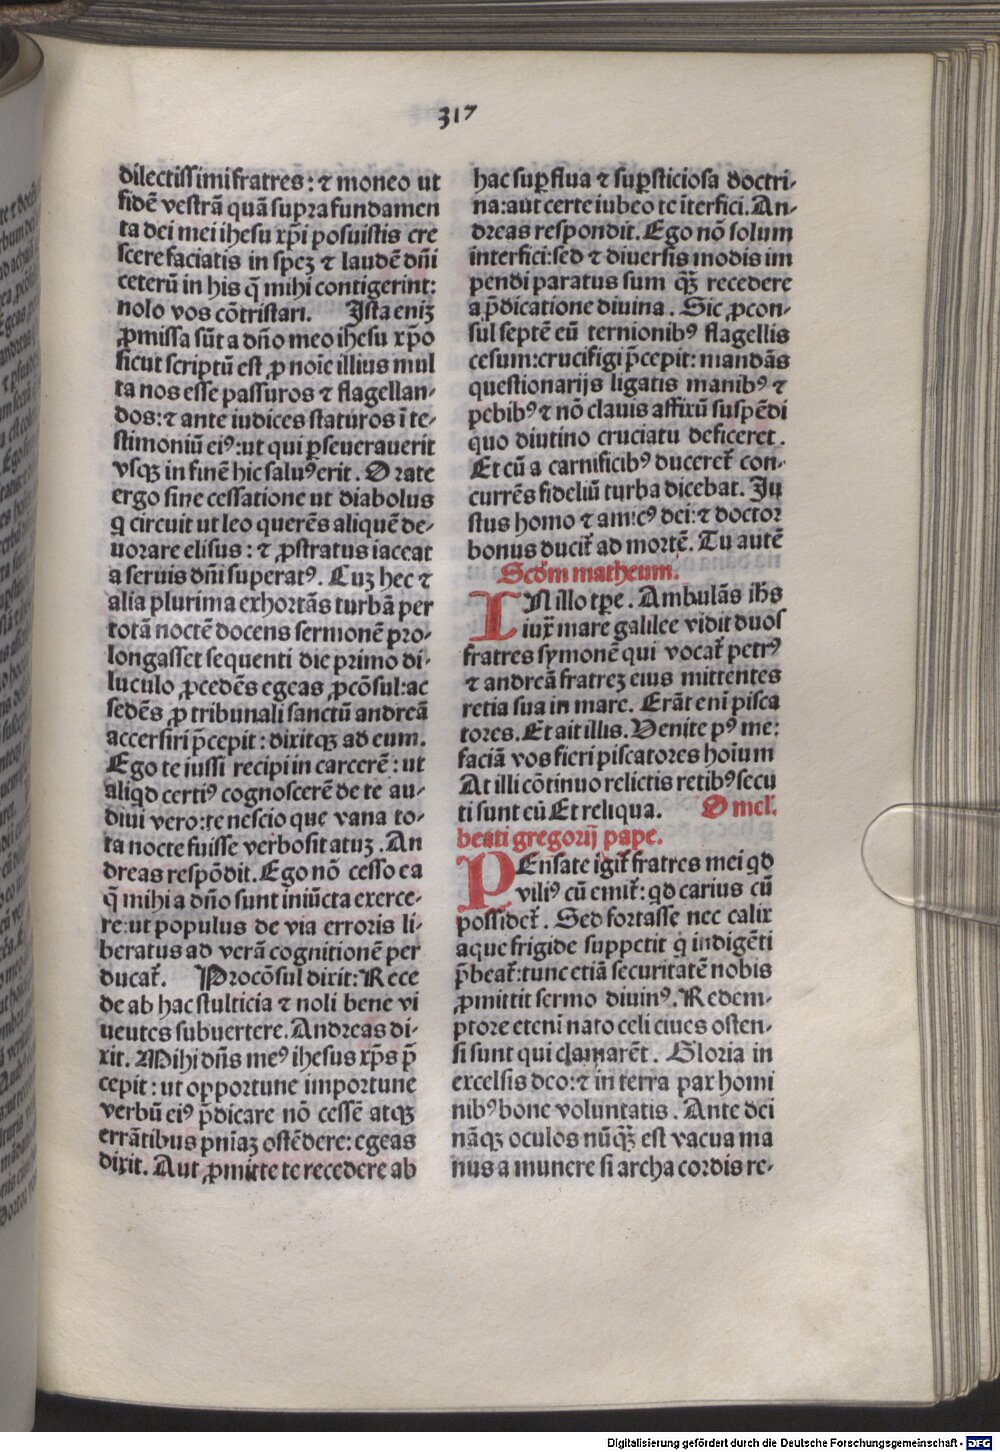 317
dilectissimi fratres: ⁊ moneo ut
fidē vestrā quā supra fundamen
ta dei mei ihesu xp̄i posuistis cre
scere faciatis in speꝫ ⁊ laudē dn̄i
ceterū in his q̄ mihi contigerint:
nolo vos cōtristari. Ista eniꝫ
ꝓmissa sūt a dn̄o meo ihesu xp̄o
sicut scriptū est ꝓ noīe illius mul
ta nos esse passuros ⁊ flagellan-
dos: ⁊ ante iudices staturos ī te-
stimoniū eiꝰ: ut qui ꝑseuerauerit
vsqꝫ in finē hic saluꝰ erit. Orate
ergo sine cessatione ut diabolus
q circuit ut leo querēs aliquē de-
uorare elisus: ⁊ ꝓstratus iaceat
a seruis dn̄i superatꝰ. Cuꝫ hec ⁊
alia plurima exhortās turbā per
totā noctē docens sermonē pro-
longasset sequenti die primo di-
luculo ꝓcedēs egeas ꝓcōsul: ac
sedēs ꝓ tribunali sanctū andreā
accersiri p̄cepit: dixitqꝫ ad eum.
Ego te iussi recipi in carcerē: ut
aliqd certiꝰ cognoscerē de te au-
diui vero: te nescio que vana to-
ta nocte fuisse verbositatuꝫ. An
dreas respōdit. Ego nō cesso ea
q̄ mihi a dn̄o sunt iniūcta exerce-
re: ut populus de via erroris li-
beratus ad verā cognitionē per
ducat̄. Procōsul dixit: Rece
de ab hac stulticia ⁊ noli bene vi
ueutes subuertere. Andreas di-
xit. Mihi dn̄s meꝰ ihesus xp̄s p̄
cepit: ut opportune importune
verbū eiꝰ p̄dicare nō cessē atqꝫ
errātibus pn̄iaꝫ ostēdere: egeas
dixit. Aut ꝓmitte te recedere ab
hac suꝑflua ⁊ suꝑsticiosa doctri-
na: aut certe iubeo te īterfici. An-
dreas respondit. Ego nō solum
interfici: sed ⁊ diuersis modis im
pendi paratus sum qꝫ̄ recedere
a p̄dicatione diuina. Sic ꝓcon-
sul septē eū ternionibꝰ flagellis
cesum: crucifigi p̄cepit: mandās
questionarijs ligatis manibꝰ ⁊
pebibꝰ ⁊ nō clauis affixū suspēdi
quo diutino cruciatu deficeret.
Et cū a carnificibꝰ duceret̄ con-
currēs fideliū turba dicebat. Ju
stus homo ⁊ amicꝰ dei: ⁊ doctor
bonus ducit̄ ad mortē. Tu autē
Scd̄m matheum.
IN illo tp̄e. Ambulās ih̄s
iux̄ mare galilee vidit duos
fratres symonē qui vocat̄ petrꝰ
⁊ andreā fratreꝫ eius mittentes
retia sua in mare. Erāt enī pisca
tores. Et ait illis. Venite pꝰ me:
faciā vos fieri piscatores hoīum
At illi cōtinuo relictis retibꝰ secu
ti sunt eū Et reliqua. Omel̄.
beati gregorij pape.
PEnsate igit̄ fratres mei qd
viliꝰ cū emit̄: qd carius cū
possidet̄. Sed fortasse nec calix
aque frigide suppetit q̄ indigēti
p̄beat̄: tunc etiā securitatē nobis
ꝓmittit sermo diuinꝰ. Redem-
ptore etenī nato celi ciues osten-
si sunt qui clamarēt. Gloria in
excelsis deo: ⁊ in terra pax homi
nibꝰ bone voluntatis. Ante dei
nāqꝫ oculos nūqꝫ̄ est vacua ma
nus a munere si archa cordis re-
Digitalisierung gefördert durch die Deutsche Forschungsgemeinschaft - DFG